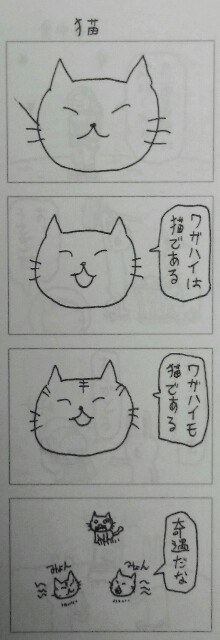 猫
ワガハイは
猫である
ワガハイモ
猫である
奇遇だな
みょん
みょん